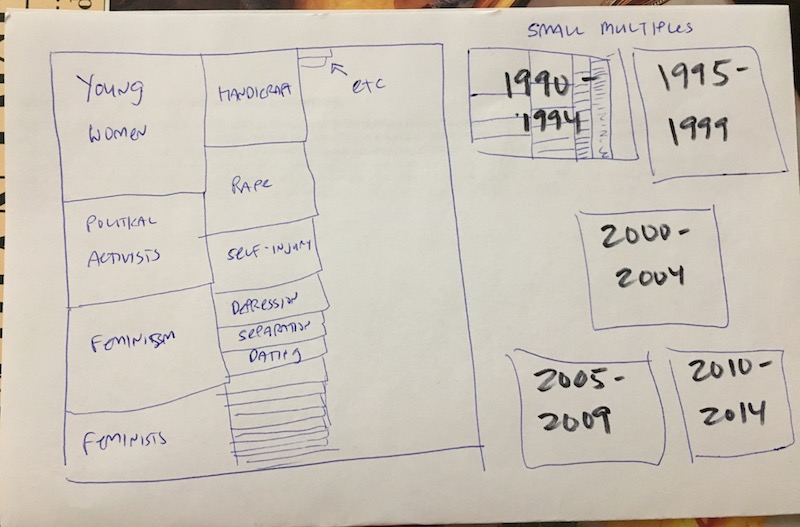 YOUNG
WOMEN
POLITICAL
ACTIVISTS
FEMINISM
FEMINISTS
HANDICRAFT
RAPE
SELF-INJURY
DEPRESSION
SEPARATION
DATING
etc
SMALL MULTIPLES
1990-
1994
1995-
1999
2000-
2004
2005-
2009
2010-
2014